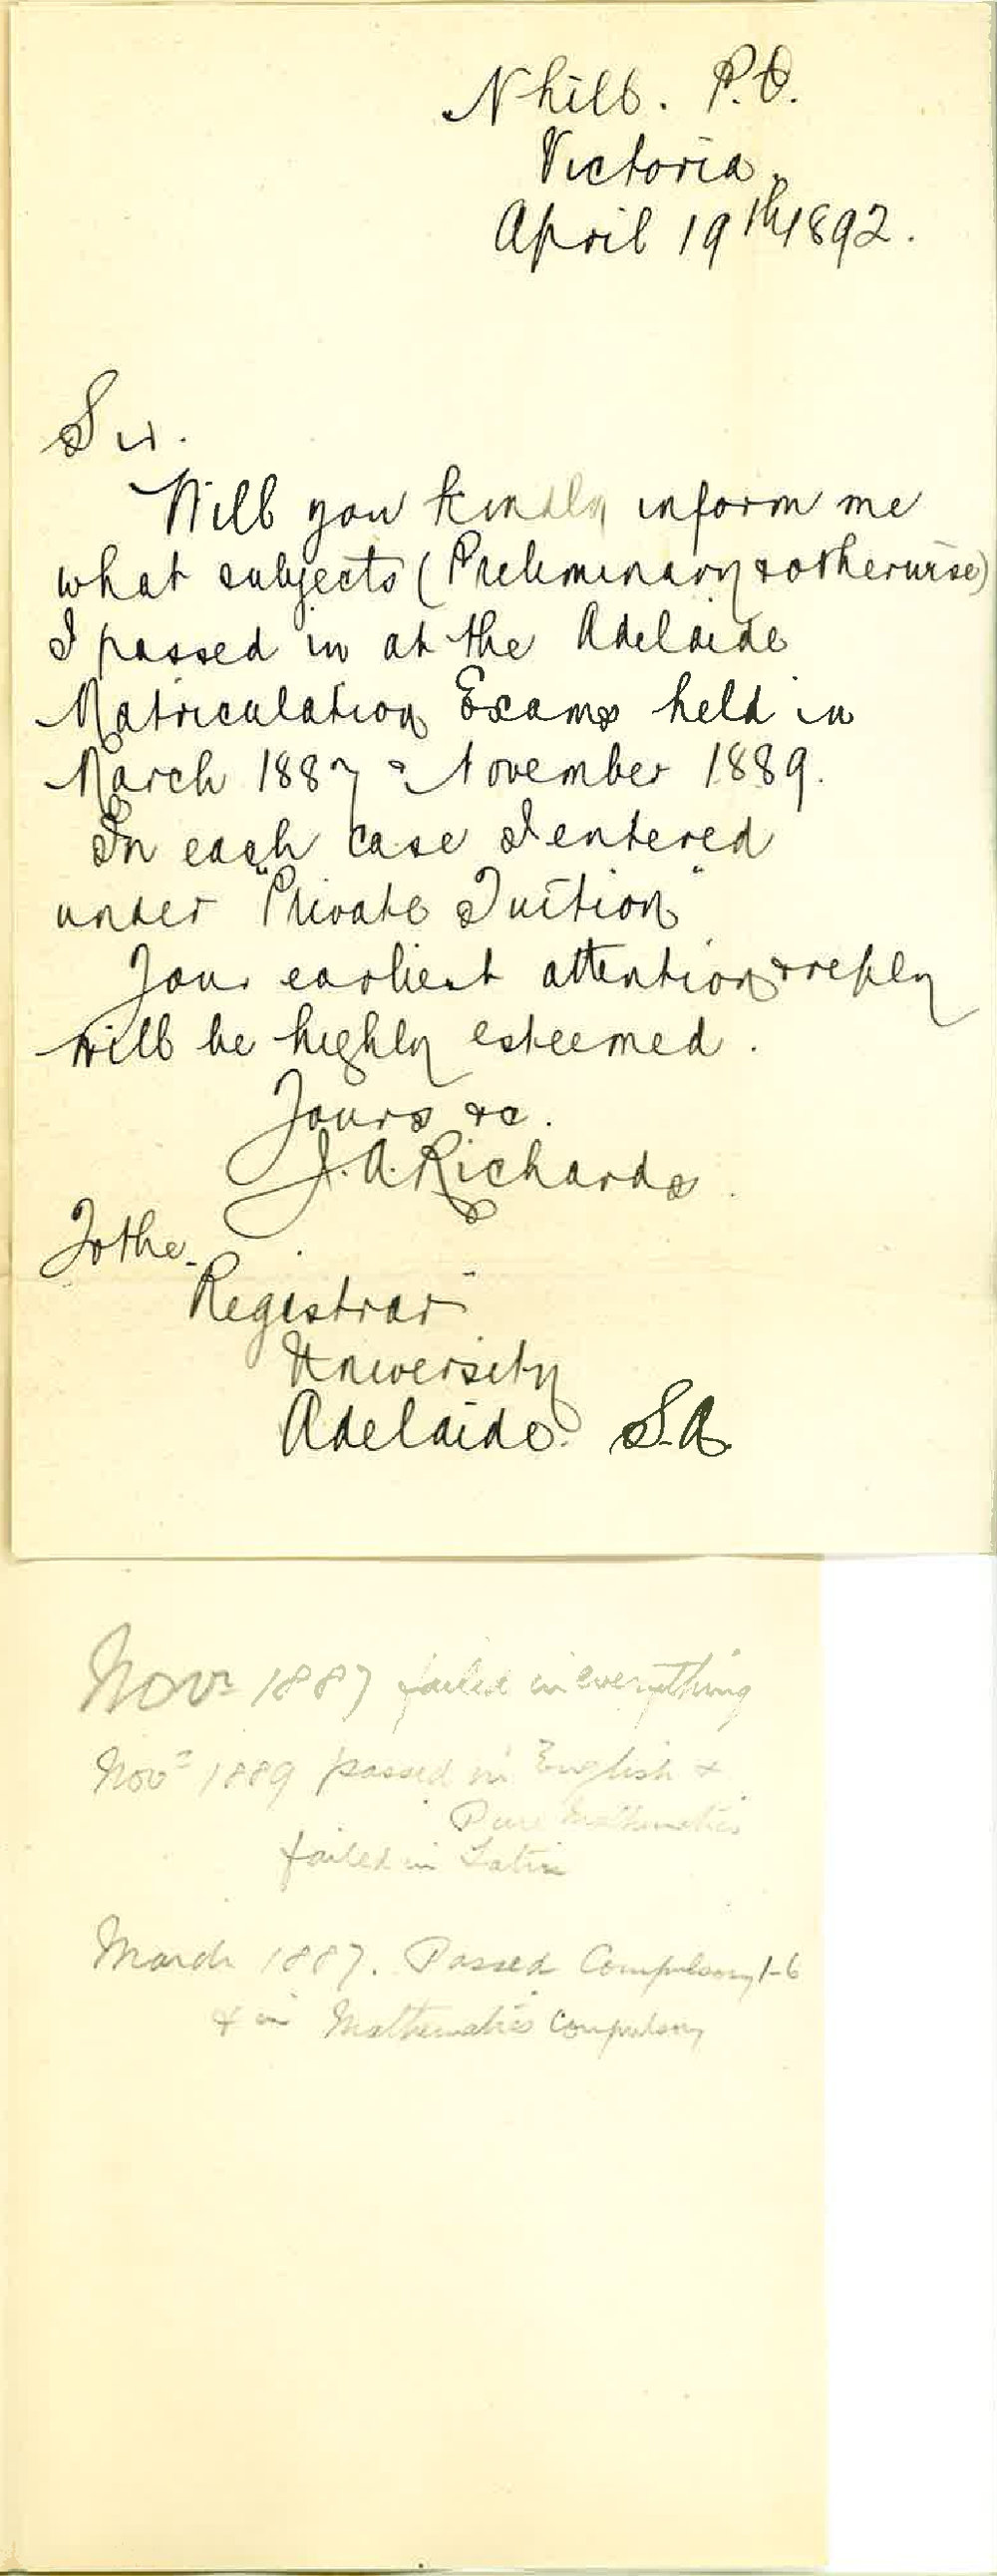 Nhill. P.O.
Victoria,
April 19th 1892.
Sir.
Will you kindly inform me
what subjects (Preliminary & otherwise)
I passed in at the Adelaide
Matriculation Exams held in
March 1887 & November 1889.
In each case I entered
under "Private Tuition"
Your earliest attention & reply
will be highly esteemed.
Yours &c.
J. A. Richards.
To the
Registrar
University
Adelaide. S.A.
Novr 1887 failed in everything
Novr 1889 passed in English &
Pure Mathematics
failed in Latin
March 1887. Passed Compulsory 1-6
& in Mathematics Compulsory